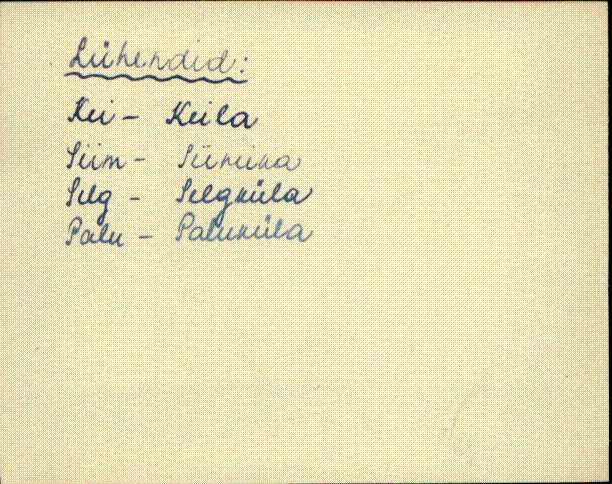 Lühendid:
Kei - Keila
Siim - Siimika
Selg - Selgküla
Palu - Paluküla